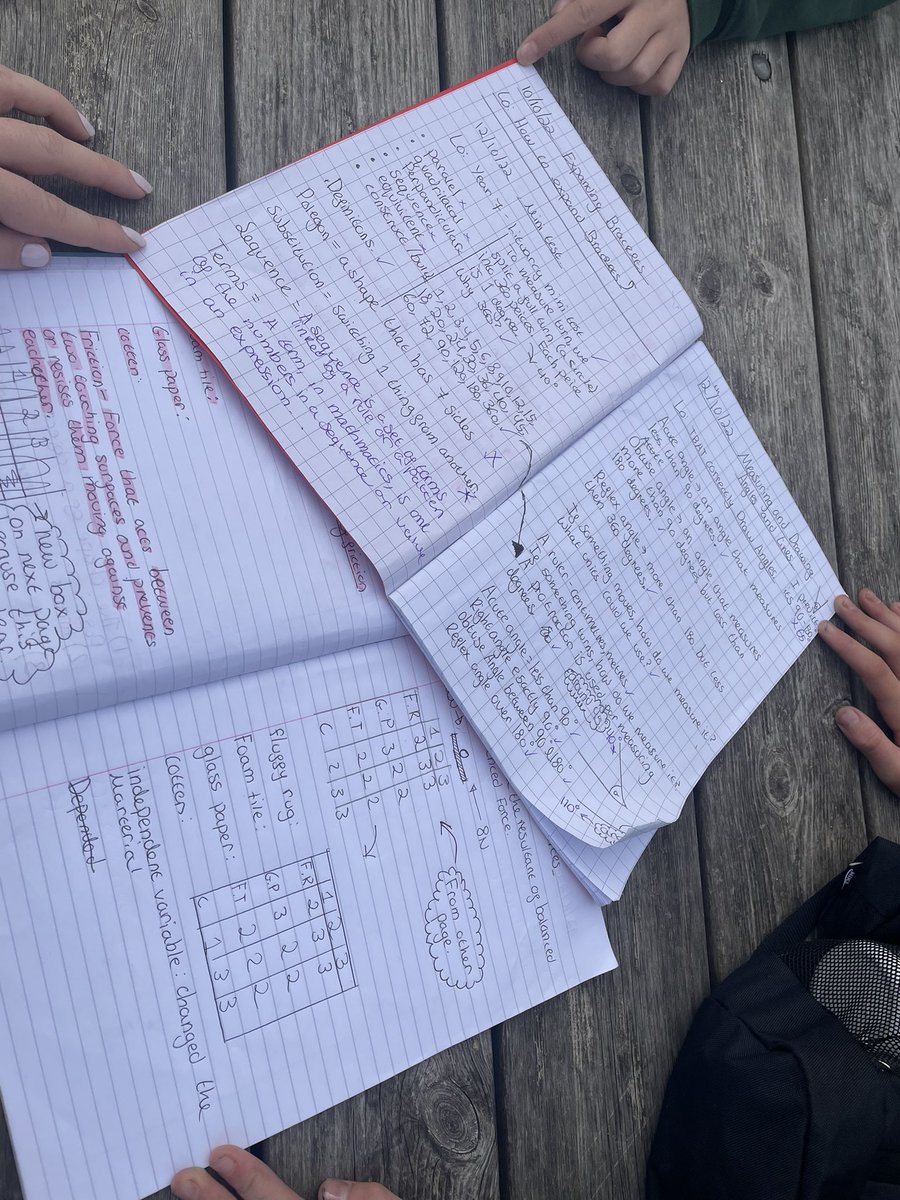 10/10/22 Expanding Brackets
Lo: How to expand Brackets
12/10/22 Mini test
Lo: Year 7 Literacy mini test
paralel x
quadrilatral x
Perpendicular
sequence
equivilent x
construct/build
To measure turn
split a full turn (a circle)
into 360 peices. Each peice
is 1 degree → 1°
Why 360?
1, 2, 3, 4, 5, 6, 8, 9, 10, 12, 15
18, 20, 24, 30, 36, 40, 45,
60, 72, 90, 120, 180, 360
Definitions ✓
Polegon = a shape that has 7 sides x
Substitution = switching 1 thing from another x
Sequence = A sequence is a set of terms
linked by a rule or pattern
Terms = A term, in mathmatics, is one
of the numbers in a sequence or value
in an expression.
Measuring and Drawing
Angles and Lines
Lo: TBAT correctly Draw Angles.
Acute angle → an angle that measures
less than 90 degrees ✓
Obtuse angle → an angle that measures
more than 90 degrees but less than
180 degrees ✓
Reflex angle → more than 180 but less
than 360 degrees ✓
If something moves, how do we measure it?
What units could we use?
A ruler - centimetres/metres ✓
If something turns, how do we measure it?
A protractor is used for measuring
degrees
Acute angle = less than 90° ✓
Right angle = exactly 90° ✓
Obtuse Angle between 90-180° ✓
Reflex angle over 180° ✓
110°
Glass paper:
cotten:
Friction = Force that acts between
two touching surfaces and prevents
or resists them moving against
eachother
1 2 3 → new box
on next page
the resultant of balanced
force.
8N
From other
page
1 2 3
F.R 2 3 3
G.P 3 2 2
F.T 2 2 2
C 1 3 3
fluffy rug:
Foam tile:
glass paper:
cotten:
1 2 3
F.R 2 3 3
G.P 3 2 2
F.T 2 2 2
C 1 3 3
independent variable: changed the
Material
Depended